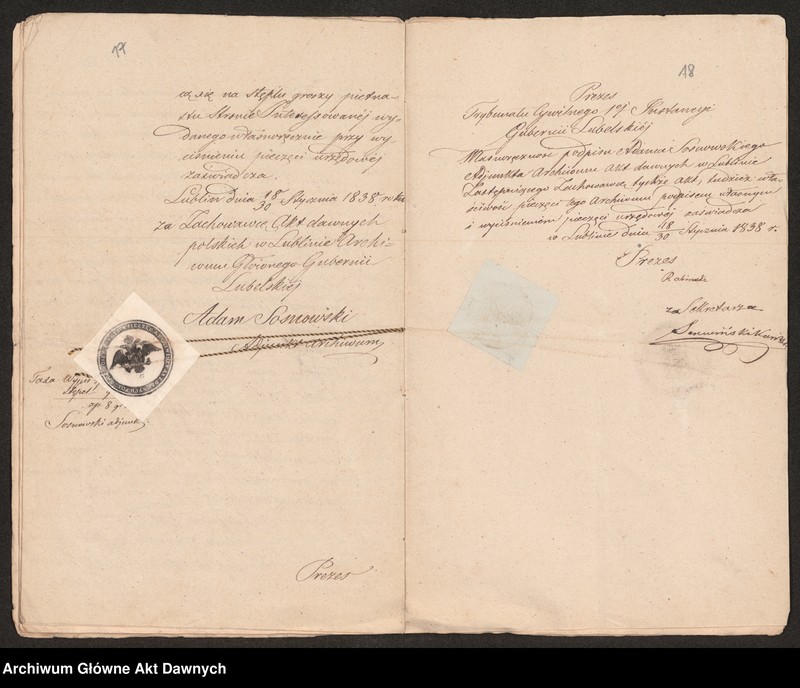 17
cą się na stęplu groszy piętna-
stu Stronie Interessowanéj wy-
danego własnoręcznie przy wy-
ciśnieniu pieczęci urzędowéj
zaświadcza.
Lublin dnia 18/30 Stycznia 1838 roku
za Zachowawcę Akt dawnych
polskich w Lublinie Archi-
wum Głównego Gubernii
Lubelskiéj
Adam Sosnowski
Adjunkt Archiwum
Taxa
Stępel
zp. 8 gr.
Sosnowski adjunk.
Prezes
18
Prezes
Trybunału Cywilnego 1ej Instancyi
Gubernii Lubelskiéj
Własnoręczność podpisu Adama Sosnowskiego
Adjunkta Archiwum Akt dawnych w Lublinie
Zastępującego Zachowawcę tychże Akt, tudzież wła-
ściwość pieczęci tego Archiwum podpisem własnym
i wyciśnieniem pieczęci urzędowéj zaświadcza
w Lublinie dnia 18/30 Stycznia 1838 r.
Prezes
za Sekretarza
Archiwum Główne Akt Dawnych